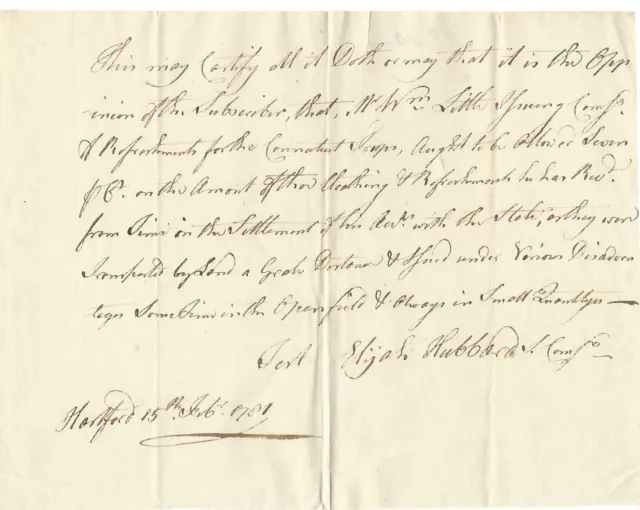 This may Certify all it Doth or may that it is the Opp
inion of the Subscriber, that, Mr Wm Little Issuing Comsy.
of Refreshments for the Connecticut Troops, Aught to be Allowed Seven
pr Ct. on the Amont of the Cloathing & Refreshments he has Recd.
from Time in the Settlement of his Acts. with the State, as they were
Transported by Land a Grate Distance & Issued under Various Disadvan
tages Some Times in the Open field & Always in Small Quantityes —
Test Elijah Hubbard S. Comsy
Hartford 15th Feby. 1781